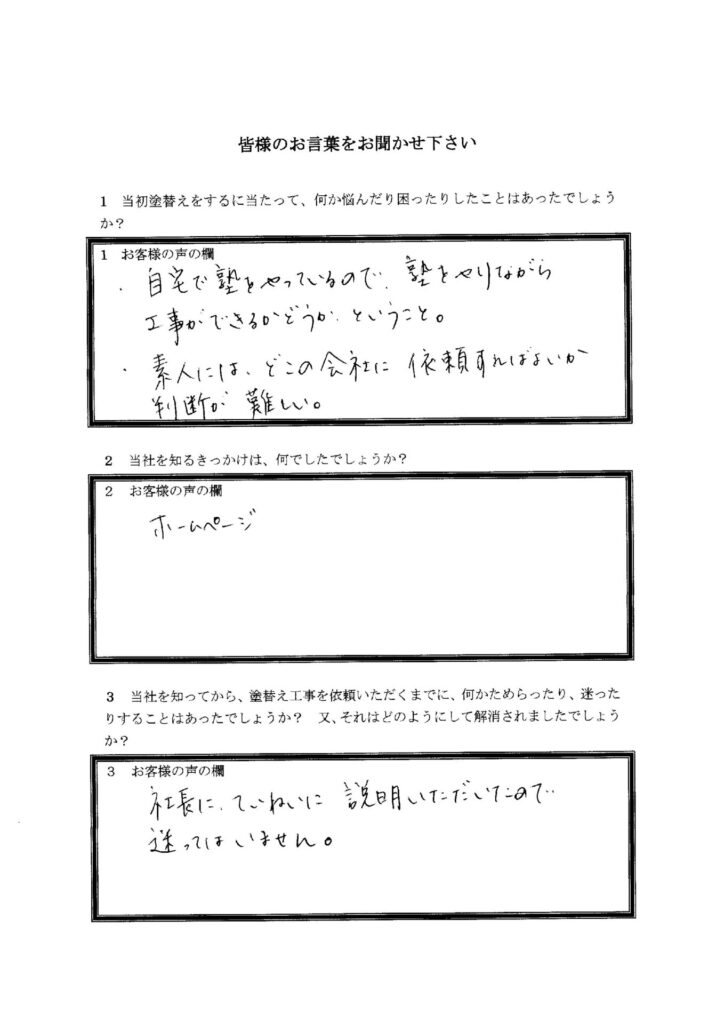 皆様のお言葉をお聞かせ下さい
1 当初塗替えをするに当たって、何か悩んだり困ったりしたことはあったでしょう
か？
1 お客様の声の欄
・自宅で塾をやっているので、塾をやりながら
工事ができるかどうか、ということ。
・素人には、どこの会社に依頼すればよいか
判断が難しい。
2 当社を知るきっかけは、何でしたでしょうか？
2 お客様の声の欄
ホームページ
3 当社を知ってから、塗替え工事を依頼いただくまでに、何かためらったり、迷った
りすることはあったでしょうか？ 又、それはどのようにして解消されましたでしょう
か？
3 お客様の声の欄
社長に、ていねいに説明いただいたので
迷ってはいません。